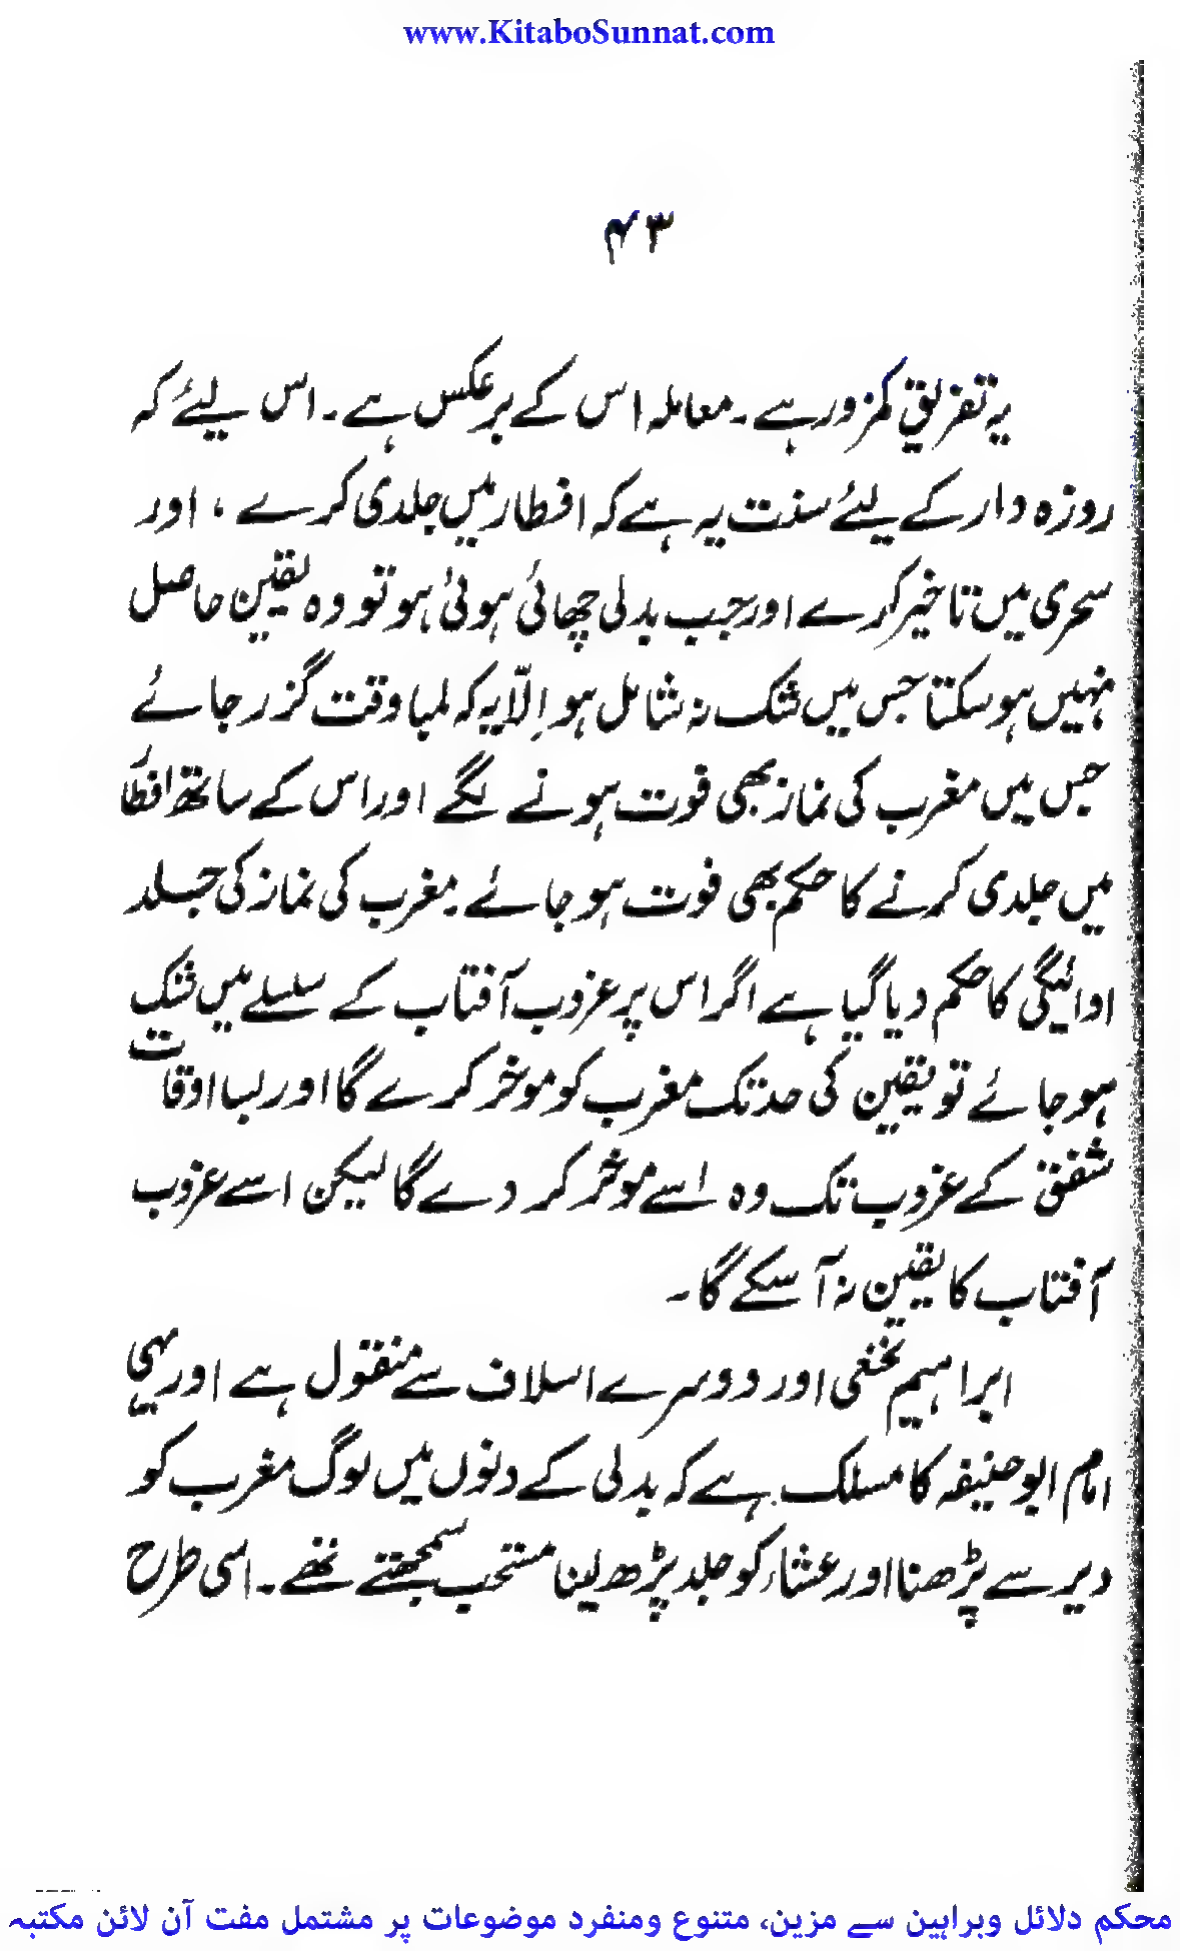 www.KitaboSunnat.com
۴۳
یہ تفریق کمزور ہے۔ معاملہ اس کے برعکس ہے۔ اس لیئے کہ
روزہ دار کے لیئے سنت یہ ہے کہ افطار میں جلدی کرے ، اور
سحری میں تاخیر کرے اور جب بدلی چھائی ہوئی ہو تو وہ یقین حاصل
نہیں ہو سکتا جس میں شک نہ شامل ہو اِلّا یہ کہ لمبا وقت گزر جائے
جس میں مغرب کی نماز بھی فوت ہونے لگے اور اس کے ساتھ افطار
میں جلدی کرنے کا حکم بھی فوت ہو جائے۔ مغرب کی نماز کی جلد
ادائیگی کا حکم دیا گیا ہے اگر اس پر غروب آفتاب کے سلسلے میں شک
ہو جائے تو یقین کی حد تک مغرب کو موخر کرے گا اور بسا اوقات
شفق کے غروب تک وہ اسے موخر کر دے گا لیکن اسے غروب
آفتاب کا یقین نہ آ سکے گا۔
ابراہیم نخعی اور دوسرے اسلاف سے منقول ہے اور یہی
امام ابو حنیفہ کا مسلک ہے کہ بدلی کے دنوں میں لوگ مغرب کو
دیر سے پڑھنا اور عشاء کو جلد پڑھ لینا مستحب سمجھتے تھے۔ اسی طرح
محکم دلائل وبراہین سے مزین، متنوع ومنفرد موضوعات پر مشتمل مفت آن لائن مکتبہ